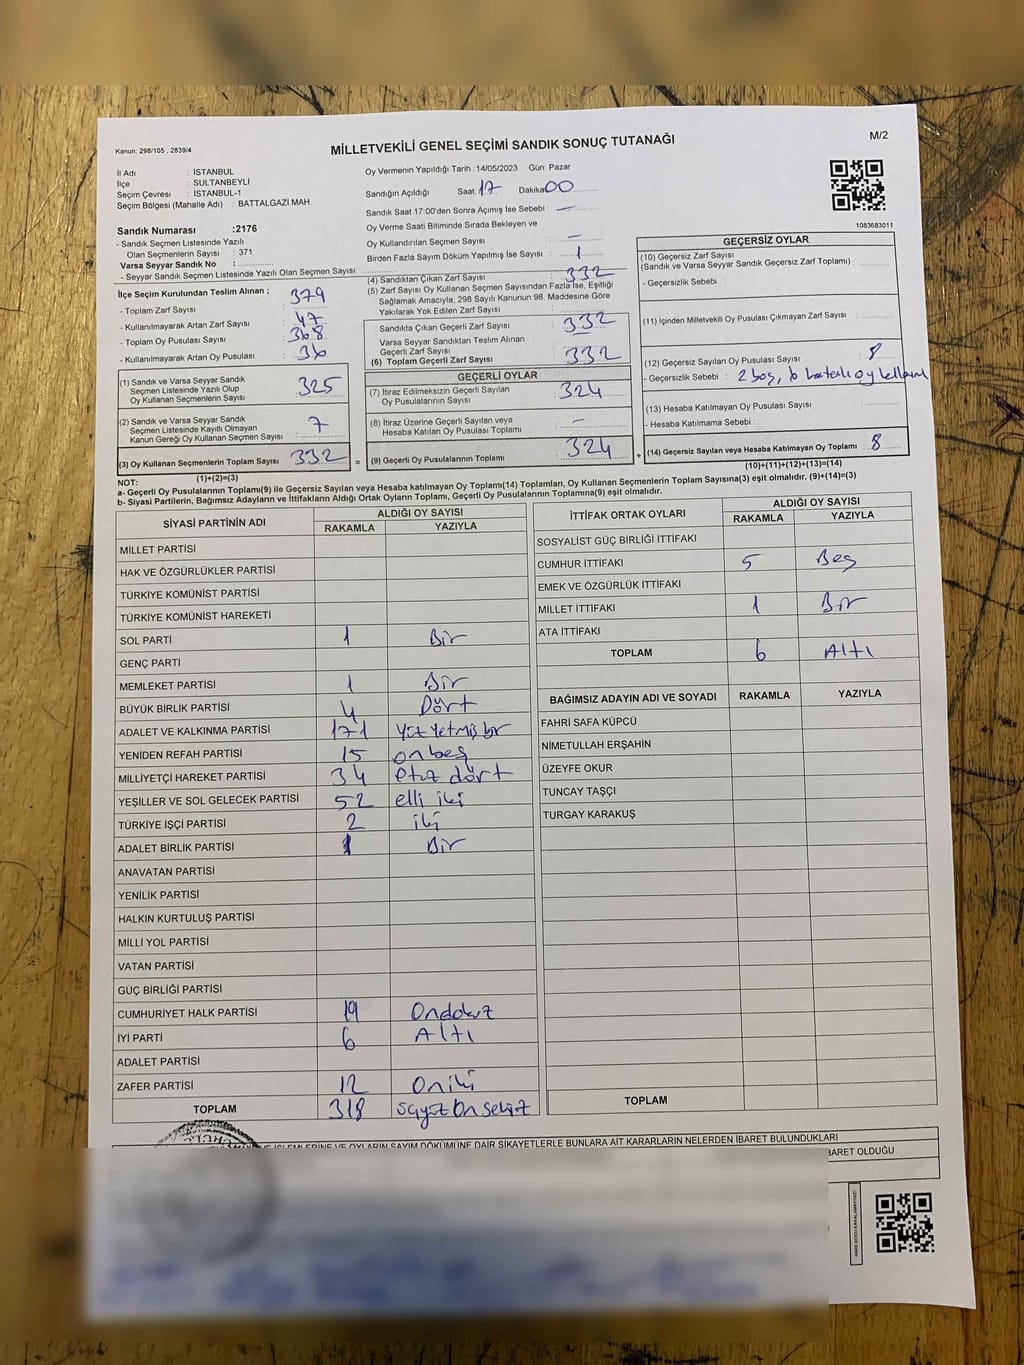 Kanun: 298/105 , 2839/4
MİLLETVEKİLİ GENEL SEÇİMİ SANDIK SONUÇ TUTANAĞI
M/2
İl Adı : İSTANBUL
İlçe : SULTANBEYLİ
Seçim Çevresi : İSTANBUL-1
Seçim Bölgesi (Mahalle Adı) : BATTALGAZİ MAH.
Sandık Numarası :2176
- Sandık Seçmen Listesinde Yazılı
Olan Seçmenlerin Sayısı : 371
Varsa Seyyar Sandık No :
- Seyyar Sandık Seçmen Listesinde Yazılı Olan Seçmen Sayısı:
İlçe Seçim Kurulundan Teslim Alınan :
- Toplam Zarf Sayısı 379
- Kullanılmayarak Artan Zarf Sayısı 47
- Toplam Oy Pusulası Sayısı 368
- Kullanılmayarak Artan Oy Pusulası 36
(1) Sandık ve Varsa Seyyar Sandık
Seçmen Listesinde Yazılı Olup
Oy Kullanan Seçmenlerin Sayısı 325
(2) Sandık ve Varsa Seyyar Sandık
Seçmen Listesinde Kayıtlı Olmayan
Kanun Gereği Oy Kullanan Seçmen Sayısı 7
(3) Oy Kullanan Seçmenlerin Toplam Sayısı 332
(1)+(2)=(3)
Oy Vermenin Yapıldığı Tarih :14/05/2023 Gün: Pazar
Sandığın Açıldığı Saat 17 Dakika 00
Sandık Saat 17:00'den Sonra Açımış İse Sebebi : —
Oy Verme Saati Bitiminde Sırada Bekleyen ve
Oy Kullandırılan Seçmen Sayısı : —
Birden Fazla Sayım Döküm Yapılmış İse Sayısı : 1
(4) Sandıktan Çıkan Zarf Sayısı 332
(5) Zarf Sayısı Oy Kullanan Seçmen Sayısından Fazla İse, Eşitliği
Sağlamak Amacıyla, 298 Sayılı Kanunun 98. Maddesine Göre
Yakılarak Yok Edilen Zarf Sayısı :
Sandıkta Çıkan Geçerli Zarf Sayısı : 332
Varsa Seyyar Sandıktan Teslim Alınan
Geçerli Zarf Sayısı : —
(6) Toplam Geçerli Zarf Sayısı 332
GEÇERLİ OYLAR
(7) İtiraz Edilmeksizin Geçerli Sayılan
Oy Pusulalarının Sayısı : 324
(8) İtiraz Üzerine Geçerli Sayılan veya
Hesaba Katılan Oy Pusulası Toplamı : —
= (9) Geçerli Oy Pusulalarının Toplamı 324 +
1083683011
GEÇERSİZ OYLAR
(10) Geçersiz Zarf Sayısı
(Sandık ve Varsa Seyyar Sandık Geçersiz Zarf Toplamı) :
- Geçersizlik Sebebi :
(11) İçinden Milletvekili Oy Pusulası Çıkmayan Zarf Sayısı :
(12) Geçersiz Sayılan Oy Pusulası Sayısı : 8
- Geçersizlik Sebebi : 2 boş, 6 hatalı oy
(13) Hesaba Katılmayan Oy Pusulası Sayısı :
- Hesaba Katılmama Sebebi :
(14) Geçersiz Sayılan veya Hesaba Katılmayan Oy Toplamı : 8
(10)+(11)+(12)+(13)=(14)
NOT:
a- Geçerli Oy Pusulalarının Toplamı(9) ile Geçersiz Sayılan veya Hesaba Katılmayan Oy Toplamı(14) Toplamları, Oy Kullanan Seçmenlerin Toplam Sayısına(3) eşit olmalıdır. (9)+(14)=(3)
b- Siyasi Partilerin, Bağımsız Adayların ve İttifakların Aldığı Ortak Oyların Toplamı, Geçerli Oy Pusulalarının Toplamına(9) eşit olmalıdır.
SİYASİ PARTİNİN ADI ALDIĞI OY SAYISI
RAKAMLA YAZIYLA
MİLLET PARTİSİ
HAK VE ÖZGÜRLÜKLER PARTİSİ
TÜRKİYE KOMÜNİST PARTİSİ
TÜRKİYE KOMÜNİST HAREKETİ
SOL PARTİ 1 Bir
GENÇ PARTİ
MEMLEKET PARTİSİ 1 Bir
BÜYÜK BİRLİK PARTİSİ 4 Dört
ADALET VE KALKINMA PARTİSİ 171 Yüz yetmiş bir
YENİDEN REFAH PARTİSİ 15 on beş
MİLLİYETÇİ HAREKET PARTİSİ 34 otuz dört
YEŞİLLER VE SOL GELECEK PARTİSİ 52 elli iki
TÜRKİYE İŞÇİ PARTİSİ 2 iki
ADALET BİRLİK PARTİSİ 1 Bir
ANAVATAN PARTİSİ
YENİLİK PARTİSİ
HALKIN KURTULUŞ PARTİSİ
MİLLİ YOL PARTİSİ
VATAN PARTİSİ
GÜÇ BİRLİĞİ PARTİSİ
CUMHURİYET HALK PARTİSİ 19 Ondokuz
İYİ PARTİ 6 Altı
ADALET PARTİSİ
ZAFER PARTİSİ 12 Oniki
TOPLAM 318 üçyüz On sekiz
İTTİFAK ORTAK OYLARI ALDIĞI OY SAYISI
RAKAMLA YAZIYLA
SOSYALİST GÜÇ BİRLİĞİ İTTİFAKI
CUMHUR İTTİFAKI 5 Beş
EMEK VE ÖZGÜRLÜK İTTİFAKI
MİLLET İTTİFAKI 1 Bir
ATA İTTİFAKI
TOPLAM 6 Altı
BAĞIMSIZ ADAYIN ADI VE SOYADI RAKAMLA YAZIYLA
FAHRİ SAFA KÜPCÜ
NİMETULLAH ERŞAHİN
ÜZEYFE OKUR
TUNCAY TAŞÇI
TURGAY KARAKUŞ
TOPLAM
İŞLEMLERİNE VE OYLARIN SAYIM DÖKÜMÜNE DAİR ŞİKAYETLERLE BUNLARA AİT KARARLARIN NELERDEN İBARET BULUNDUKLARI
BARET OLDUĞU